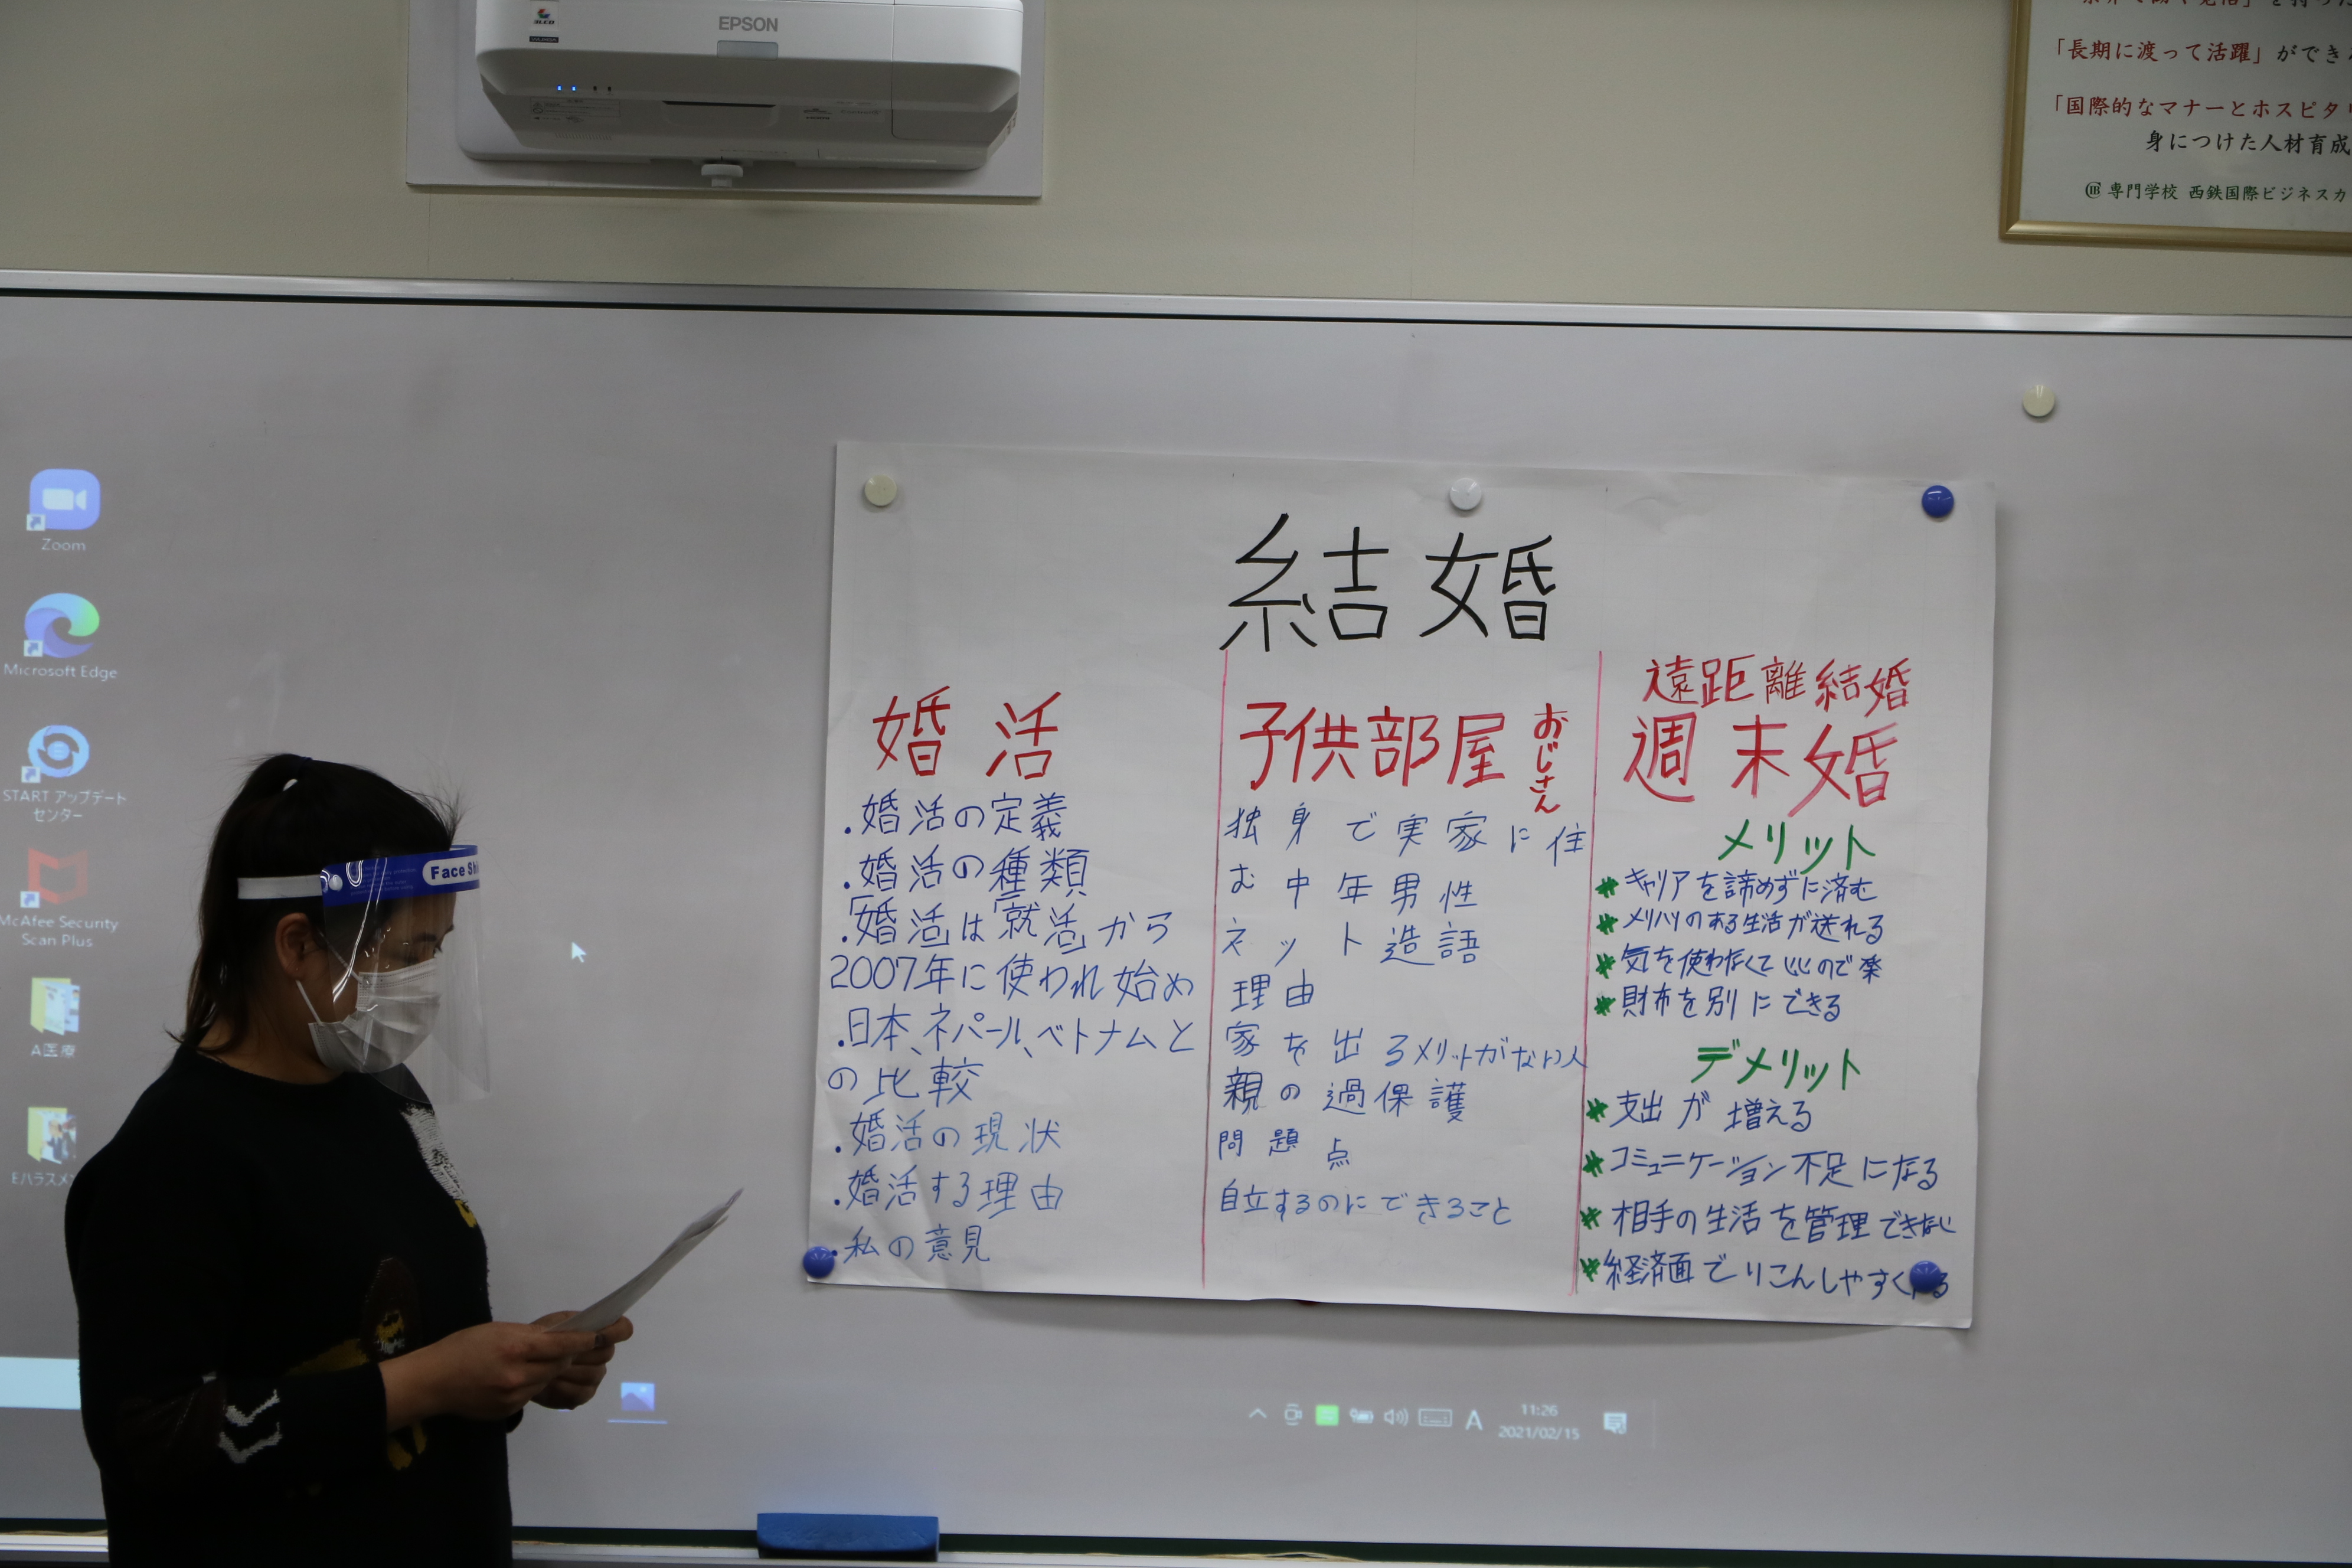 EPSON
3LCD
「長期に渡って活躍」ができ
「国際的なマナーとホスピタ
身につけた人材育成
専門学校 西鉄国際ビジネスカ
Zoom
Microsoft Edge
START アップデート
センター
McAfee Security
Scan Plus
A医療
Eハラスメ
Face Sh
結婚
婚活
・婚活の定義
・婚活の種類
・「婚活」は「就活」から
2007年に使われ始め
・日本、ネパール、ベトナムと
の比較
・婚活の現状
・婚活する理由
・私の意見
子供部屋おじさん
独身で実家に住
む中年男性
ネット造語
理由
家を出るメリットがない人
親の過保護
問題点
自立するのにできること
遠距離結婚
週末婚
メリット
* キャリアを諦めずに済む
* メリハリのある生活が送れる
* 気を使わなくていいので楽
* 財布を別にできる
デメリット
* 支出が増える
* コミュニケーション不足になる
* 相手の生活を管理できない
* 経済面でりこんしやすくなる
A
11:26
2021/02/15